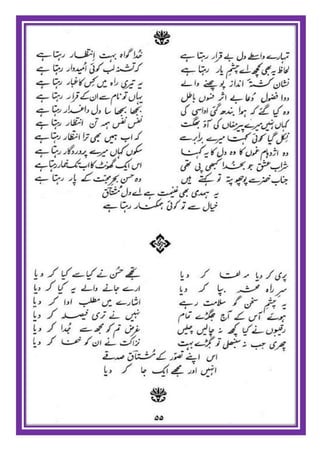 تمہارے واسطے دل بے قرار رہتا ہے خدا گواہ بہت انتظار رہتا ہے
لحاظ یہ بھی کچھ اے چشم یار رہتا ہے کہ تشنہ لب کوئی امیدوار رہتا ہے
نشان کشتۂ انداز پوچھنے والے یہ تیری راہ میں کس کا غبار رہتا ہے
دوا فضول دعا بے اثر فسوں باطل یہاں تو نام سے ان کے قرار رہتا ہے
وہ کیا گئے کہ ہوا بندھ گئی اداسی کی بجھا بجھا سا دل داغدار رہتا ہے
کہاں نہیں میرے کی آؤ بھگت نفس نفس ہمہ تن انتظار رہتا ہے
نکل گیا کوئی میرے برابر سے کہ اب ہمیں بھی ترا انتظار رہتا ہے
وہ اژدہام غموں کا وہ دل کا یہ کہنا سکوں کہاں میرے پروردگار رہتا ہے
شراب عشق جو بخدا کبھی پی تھی اس ایک گھونٹ کا اب تک خمار رہتا ہے
جناب خضر سے پوچھو پتہ تو کہتے ہیں وہ حسن بحر محبت کے پار رہتا ہے
یہ ہمدمی بھی غنیمت ہے اے دل مشتاق
خیال سے تو کوئی ہمکنار رہتا ہے
پری کر دیا مہ لقا کر دیا تجھے حسن نے کیا سے کیا کر دیا
سر راہ محشر بپا کر دیا ارے جانے والے یہ کیا کر دیا
یہ چشم سخن گو سلامت رہے اشارے میں مطلب ادا کر دیا
ہوئے اس کے آج جھگڑے تمام نہیں نے تری فیصلہ کر دیا
رقیبوں نے کیا کچھ نہ چالیں چلیں غرض تم کو مجھ سے جدا کر دیا
چھری جب نہ سنبھلی تو بگڑے بہت نزاکت نے ان کو خفا کر دیا
اس اپنے تصور کے مشتاق صدقے
انہیں اور مجھے ایک جا کر دیا
۵۵